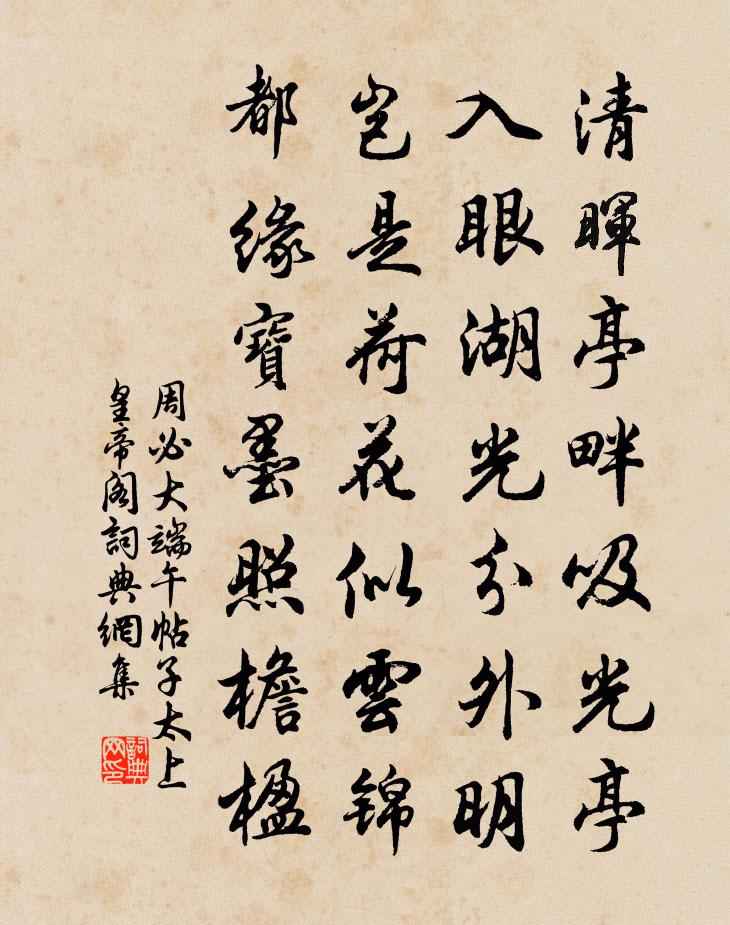 清暉亭畔吸光亭
入眼湖光分外明
豈是荷花似雲錦
都緣寶墨照檐楹
周必大端午帖子太上
皇帝阁詞典網集
詞典
网印